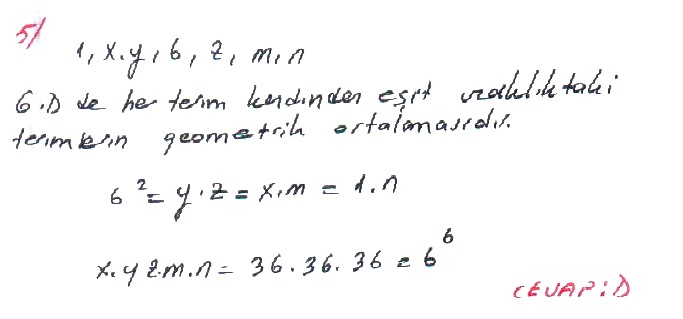 5/
1, x, y, 6, z, m, n
G.D de her terim kendinden eşit uzaklıktaki
terimlerin geometrik ortalamasıdır.
6² = y.z = x.m = 1.n
x.y z.m.n = 36.36.36 = 6⁶
CEVAP: D